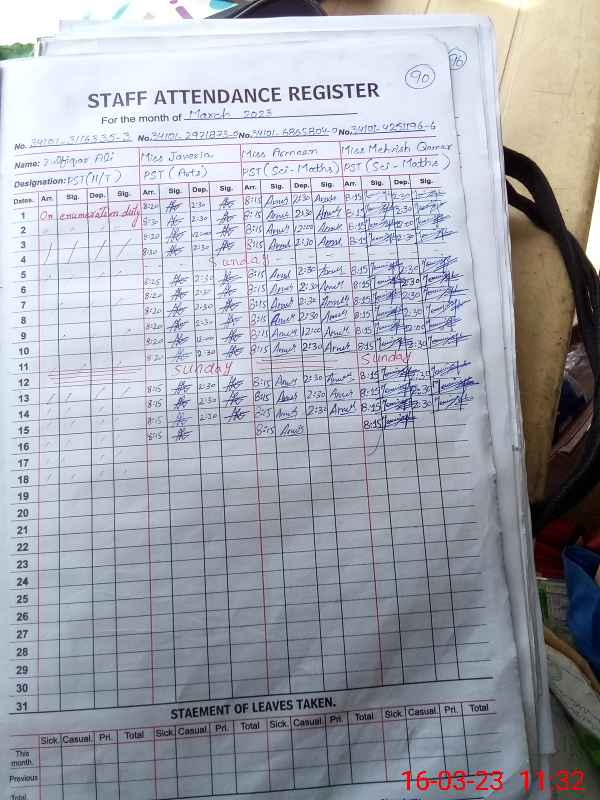 90
76
STAFF ATTENDANCE REGISTER
For the month of March 2023
No. 34101-3116335-3 No. 34101-2971873- No. 34101-6865804- No. 34101-4251196-6
Name: Zulfiqar Ali Miss Javeria Miss Mehrish Qamar
Designation: PST(H/T) PST (Arts) PST(Sci-Maths) PST(Sci-Maths)
Dates. Arr. Sig. Dep. Sig. Arr. Sig. Dep. Sig. Arr. Sig. Dep. Sig. Arr. Sig. Dep. Sig.
1 On enumeration duty 8:20 2:30 8:15 2:30 8:15 2:30
2 8:20 2:30 8:15 2:30 8:15 2:30
3 8:20 12:00 8:15 12:00 8:15
4 8:20 8:15 2:30 8:15
5 Sunday
6 8:25 2:30 8:15 2:30 8:15 2:30
7 8:20 2:30 8:15 2:30 8:15 2:30
8 8:20 2:30 8:15 2:30 8:15 2:30
9 8:20 2:30 8:15 2:30 8:15 2:30
10 8:20 12:00 8:15 12:00 8:15
11 8:20 2:30 8:15 2:30 8:15 2:30
12 Sunday Sunday
13 8:15 2:30 8:15 2:30 8:15 2:30
14 8:15 2:30 8:15 2:30 8:15 2:30
15 8:15 2:30 8:15 2:30 8:15 2:30
16 8:15 8:15 8:15
17
18
19
20
21
22
23
24
25
26
27
28
29
30
31
STAEMENT OF LEAVES TAKEN.
Sick. Casual. Pri. Total Sick. Casual. Pri. Total Sick. Casual. Pri. Total Sick. Casual. Pri. Total
This month.
Previous
Total
16-03-23 11:32